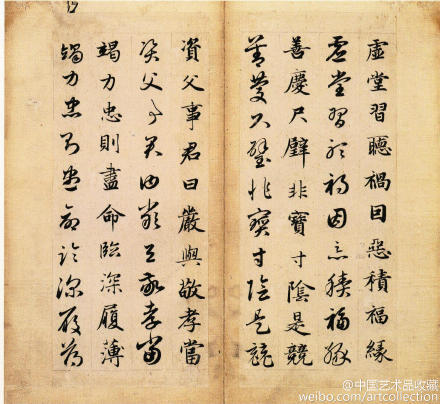 虛堂習聽禍因惡積福緣
虛堂習聽禍因惡積福緣
善慶尺璧非寶寸陰是競
善慶尺璧非寶寸陰是競
資父事君曰嚴與敬孝當
資父事君曰嚴與敬孝當
竭力忠則盡命臨深履薄
竭力忠則盡命臨深履薄
@中国艺术品收藏
weibo.com/artcollection